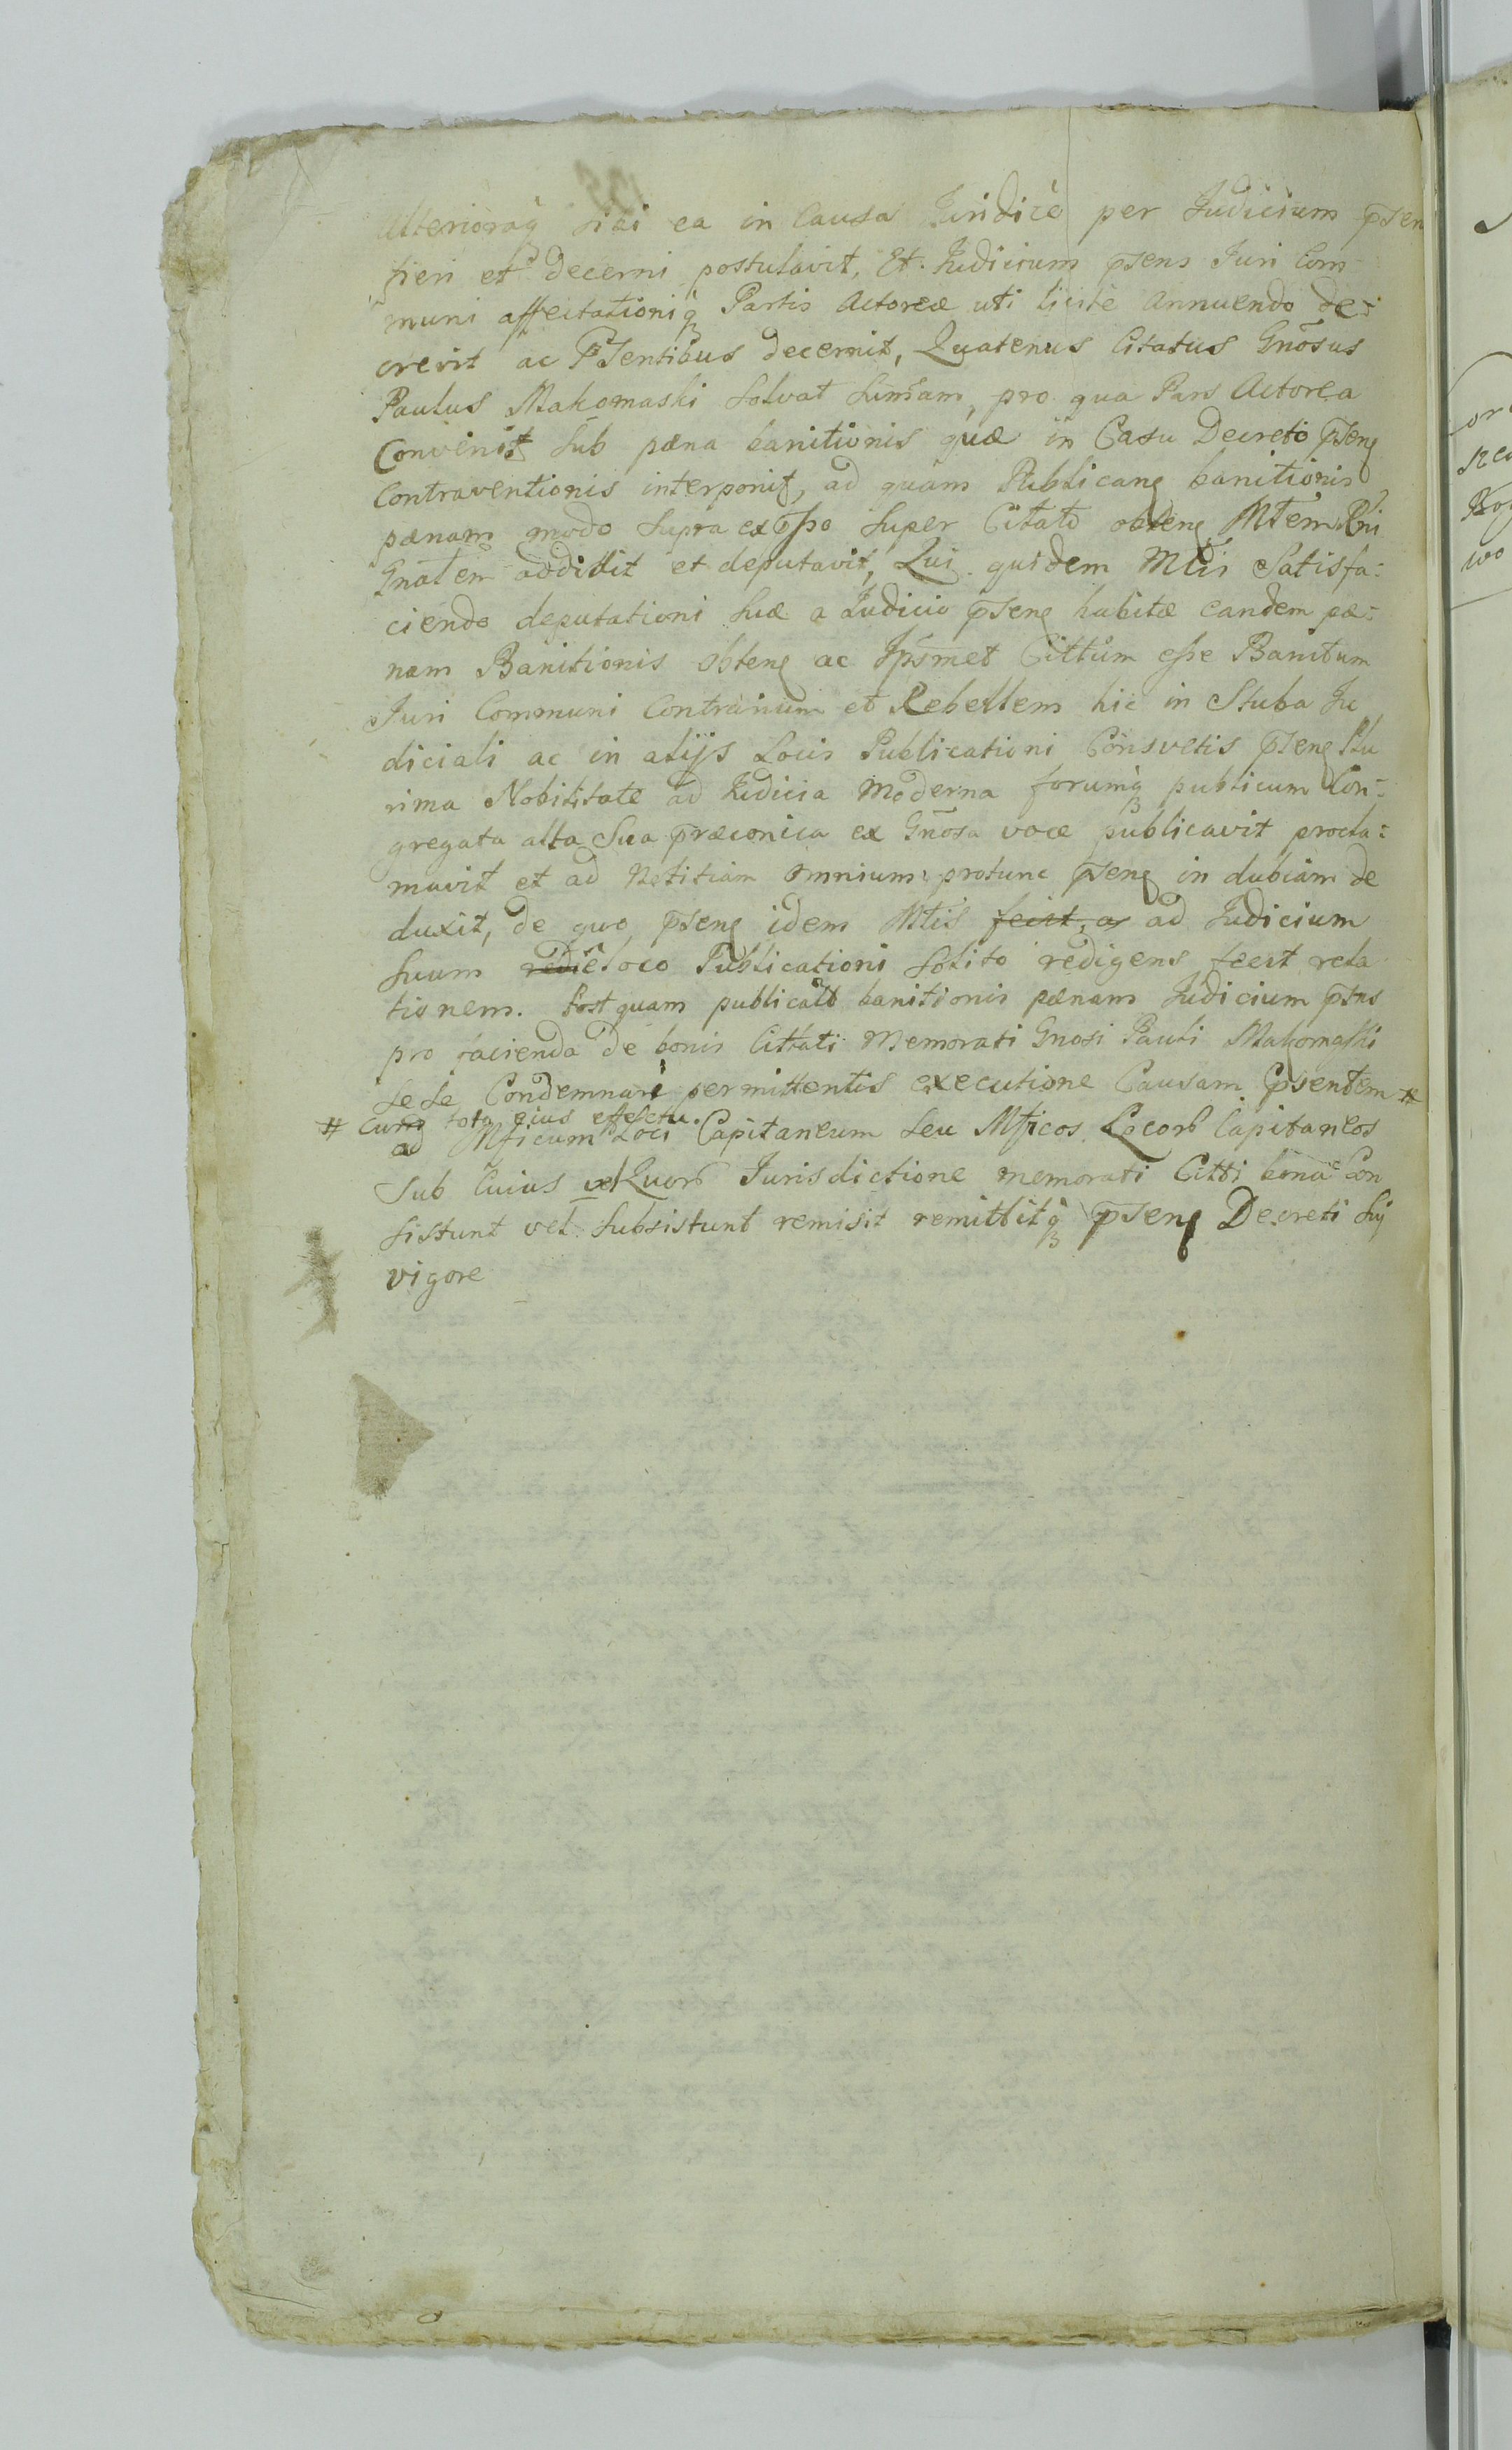 Ulterioraq̃ sibi ea in Causa Juridice per Judicium p̃sen
fieri et decerni postulavit, Et Judicium p̃sens Juri Com-
muni affectationiq̃ Partis Actoreæ uti licite Annuendo de-
crevit ac P̃sentibus decernit, Quatenus Citatus Gn̄osus
Paulus Makomaski Solvat Sum̃am, pro qua Pars Actorea
Convenit Sub pæna banitionis quæ in Casu Decreto p̃seng
Contraventionis interponit, ad quam Publicang banitionis
pænam modo Supra exp̃sso Super Citato obteng Mt̃em Rni
Gnalem addidit et deputavit, Qui quidem Mtlis Satisfa-
ciendo deputationi Suæ a Judicio p̃seng habitæ eandem pæ-
nam Banitionis obteng ac Ipsmet Cittum esse Banitum
Juri Communi Contrarium et Rebellem hic in Stuba Ju
diciali ac in alijs Locis Publicationi Consvetis p̃seng Plu
rima Nobilitate ad Judicia Moderna forumq̃ publicum Con-
gregata alta Sua præconica ex Gnosa voce publicavit procla-
mavit et ad Notitiam omnium protunc p̃seng in dubiam de
duxit, de quo p̃seng idem Mtlis fecit, ad Judicium
Suum loco Publicationi Solito redigens fecit rela
tionem. Post quam publicatã banitionis pænam Judicium p̃sns
pro facienda de bonis Cittati Memorati Gnosi Pauli Makomaski
Sese Condemnari permittentis executione Causam p̃sentem #
# Cum toto eius effectu.
ad Mficum Loci Capitaneum Seu Mficos Locorũ Capitaneos
Sub Cuius vel Quorũ Jurisdictione memorati Citti bona Con
sistunt vel Subsistunt remisit remittitq̃ p̃seng Decreti Sui
vigore